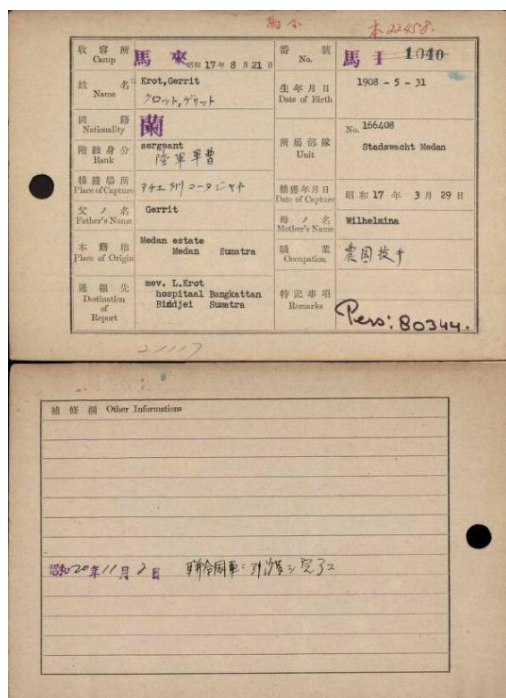 本22458.
收容所 Camp 馬來 昭和17年8月21日
番號 No. 馬 1040
姓名 Name Krot, Gerrit
クロット,ゲリット
生年月日 Date of Birth 1908-5-31
國籍 Nationality 蘭
階級身分 Rank sergeant
陸軍軍曹
所屬部隊 Unit No. 166408
Stadswacht Medan
捕獲場所 Place of Capture
捕獲年月日 Date of Capture 昭和17年 3月29日
父ノ名 Father's Name Gerrit
母ノ名 Mother's Name Wilhelmina
本籍地 Place of Origin Medan estate
Medan Sumatra
職業 Occupation 農園技手
通報先 Destination of Report mev. L.Krot
hospitaal Bangkattan
Bindjei Sumatra
特記事項 Remarks
Pers: 80344.
21117
補修欄 Other Informations
昭和20年11月2日 聯合國軍ニ引渡シ完了ス